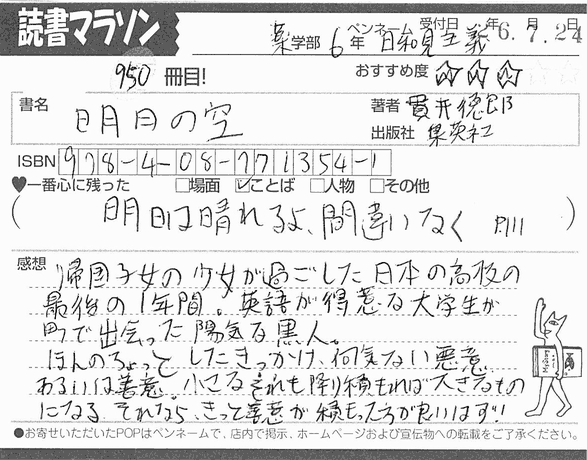 読書マラソン
薬学部 6年 ペンネーム 日和見主義 受付日 年6.月7.日24
950 冊目!
おすすめ度 ☆☆☆☆☆
書名 明日の空
著者 貫井徳郎
出版社 集英社
ISBN 978-4-08-771354-1
♥一番心に残った □場面 ☑ことば □人物 □その他
(明日は晴れるよ、間違いなく P.111)
感想 帰国子女の少女が過ごした日本の高校の
最後の1年間。英語が得意な大学生が
町で出会った陽気な黒人。
ほんのちょっとしたきっかけ、何気ない悪意
あるいは善意。小さなそれも降り積もれば大きなもの
になる。それなら、きっと善意が積もった方が良いはず!
●お寄せいただいたPOPはペンネームで、店内で掲示、ホームページおよび宣伝物への転載をご了承ください。